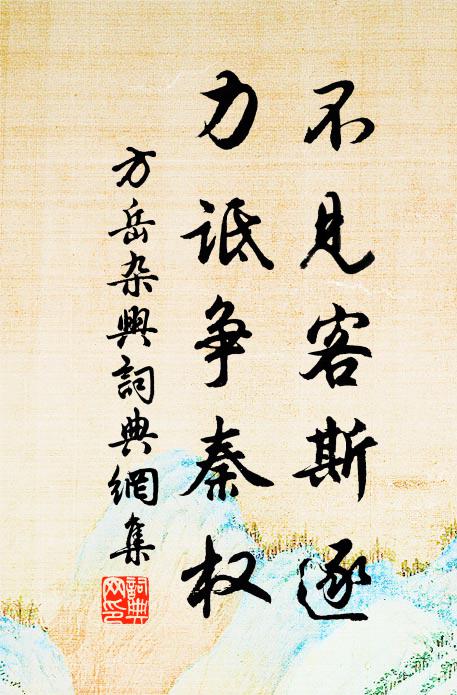 不见客斯逐
力诋争秦权
方岳杂興詞典網集
詞典